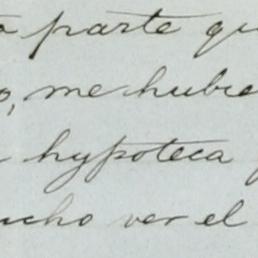 parte qu
o, me hubie
hypoteca
ucho ver el